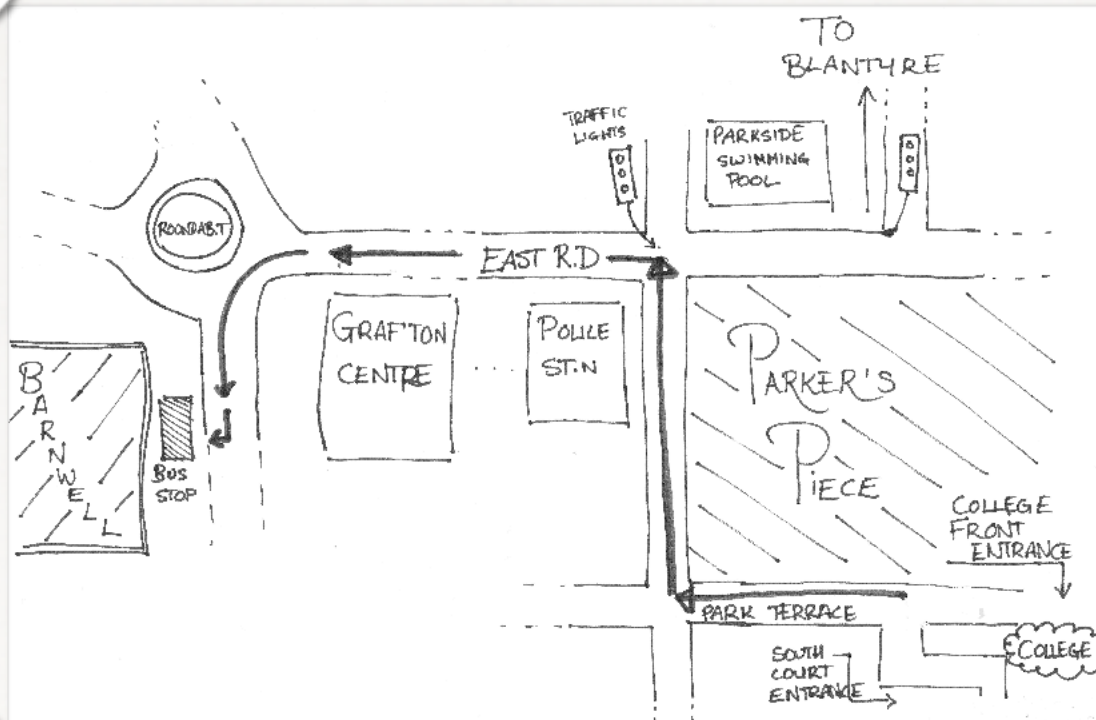 TO
BLANTYRE
TRAFFIC
LIGHTS
PARKSIDE
SWIMMING
POOL
ROUNDAB.T
EAST R.D
GRAF'TON
CENTRE
POLICE
ST.N
PARKER'S
PIECE
BARNWELL
BUS
STOP
COLLEGE
FRONT
ENTRANCE
PARK TERRACE
SOUTH
COURT
ENTRANCE
COLLEGE